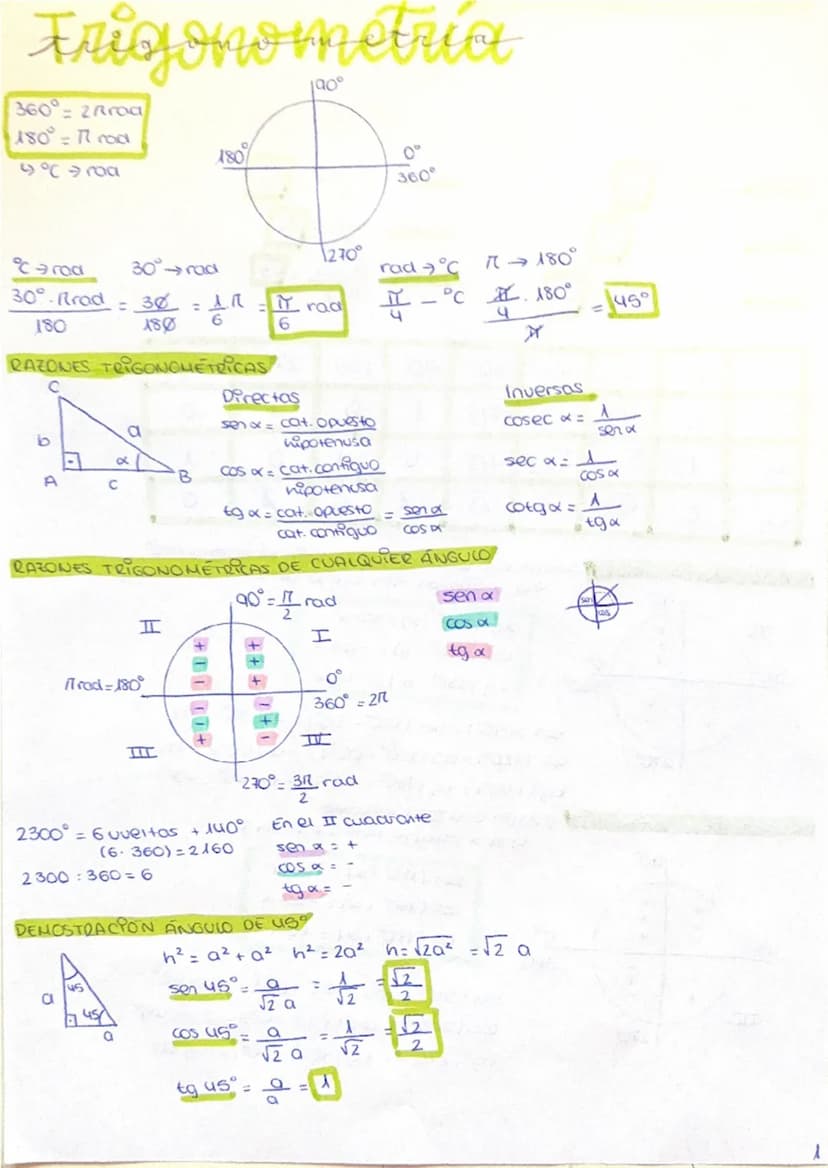 Trigonometría
360° = 2π rad
180° = π rad
↳ °C → rad
90°
180°
0°
360°
270°
°C → rad 30° → rad
30° · π rad / 180 = 30/180 = 1/6 π = π/6 rad
rad → °C π → 180°
π/4 — °C (π/4 · 180°)/π = 45°
RAZONES TRIGONOMÉTRICAS
C
b
a
α
A
c
B
Directas
sen α = cat. opuesto / hipotenusa
cos α = cat. contiguo / hipotenusa
tg α = cat. opuesto / cat. contiguo = sen α / cos α
Inversas
cosec α = 1 / sen α
sec α = 1 / cos α
cotg α = 1 / tg α
RAZONES TRIGONOMÉTRICAS DE CUALQUIER ÁNGULO
90° = π/2 rad
II
I
+ +
- +
- +
π rad = 180°
0°
360° = 2π
- -
- +
+ -
III
IV
270° = 3π/2 rad
sen α
cos α
tg α
sen
cos
2300° = 6 vueltas + 140°
(6 · 360) = 2160
2300 : 360 = 6
En el II cuadrante
sen α = +
cos α = -
tg α = -
DEMOSTRACIÓN ÁNGULO DE 45°
a
45
45
a
h² = a² + a² h² = 2a² h = √2a² = √2 a
sen 45° = a / √2 a = 1/√2 = √2/2
cos 45° = a / √2 a = 1/√2 = √2/2
tg 45° = a/a = 1
1